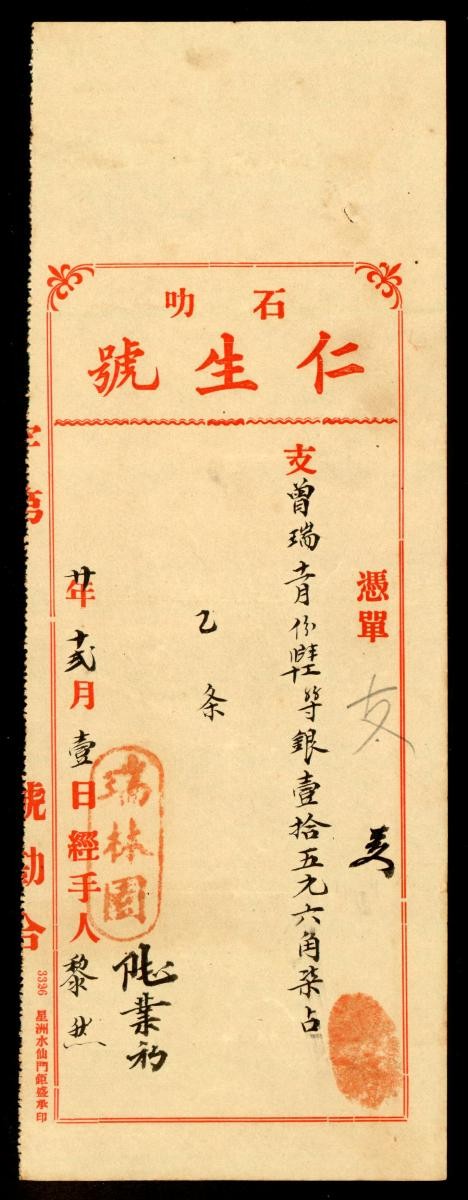 石叻
仁生號
憑單
支
支曾瑞十一月份陸等銀壹拾五元六角柒占
乙条
廿年十弍月壹日經手人黎
瑞林園
業
字第 號勘合
3396 星洲水仙門鉅盛承印